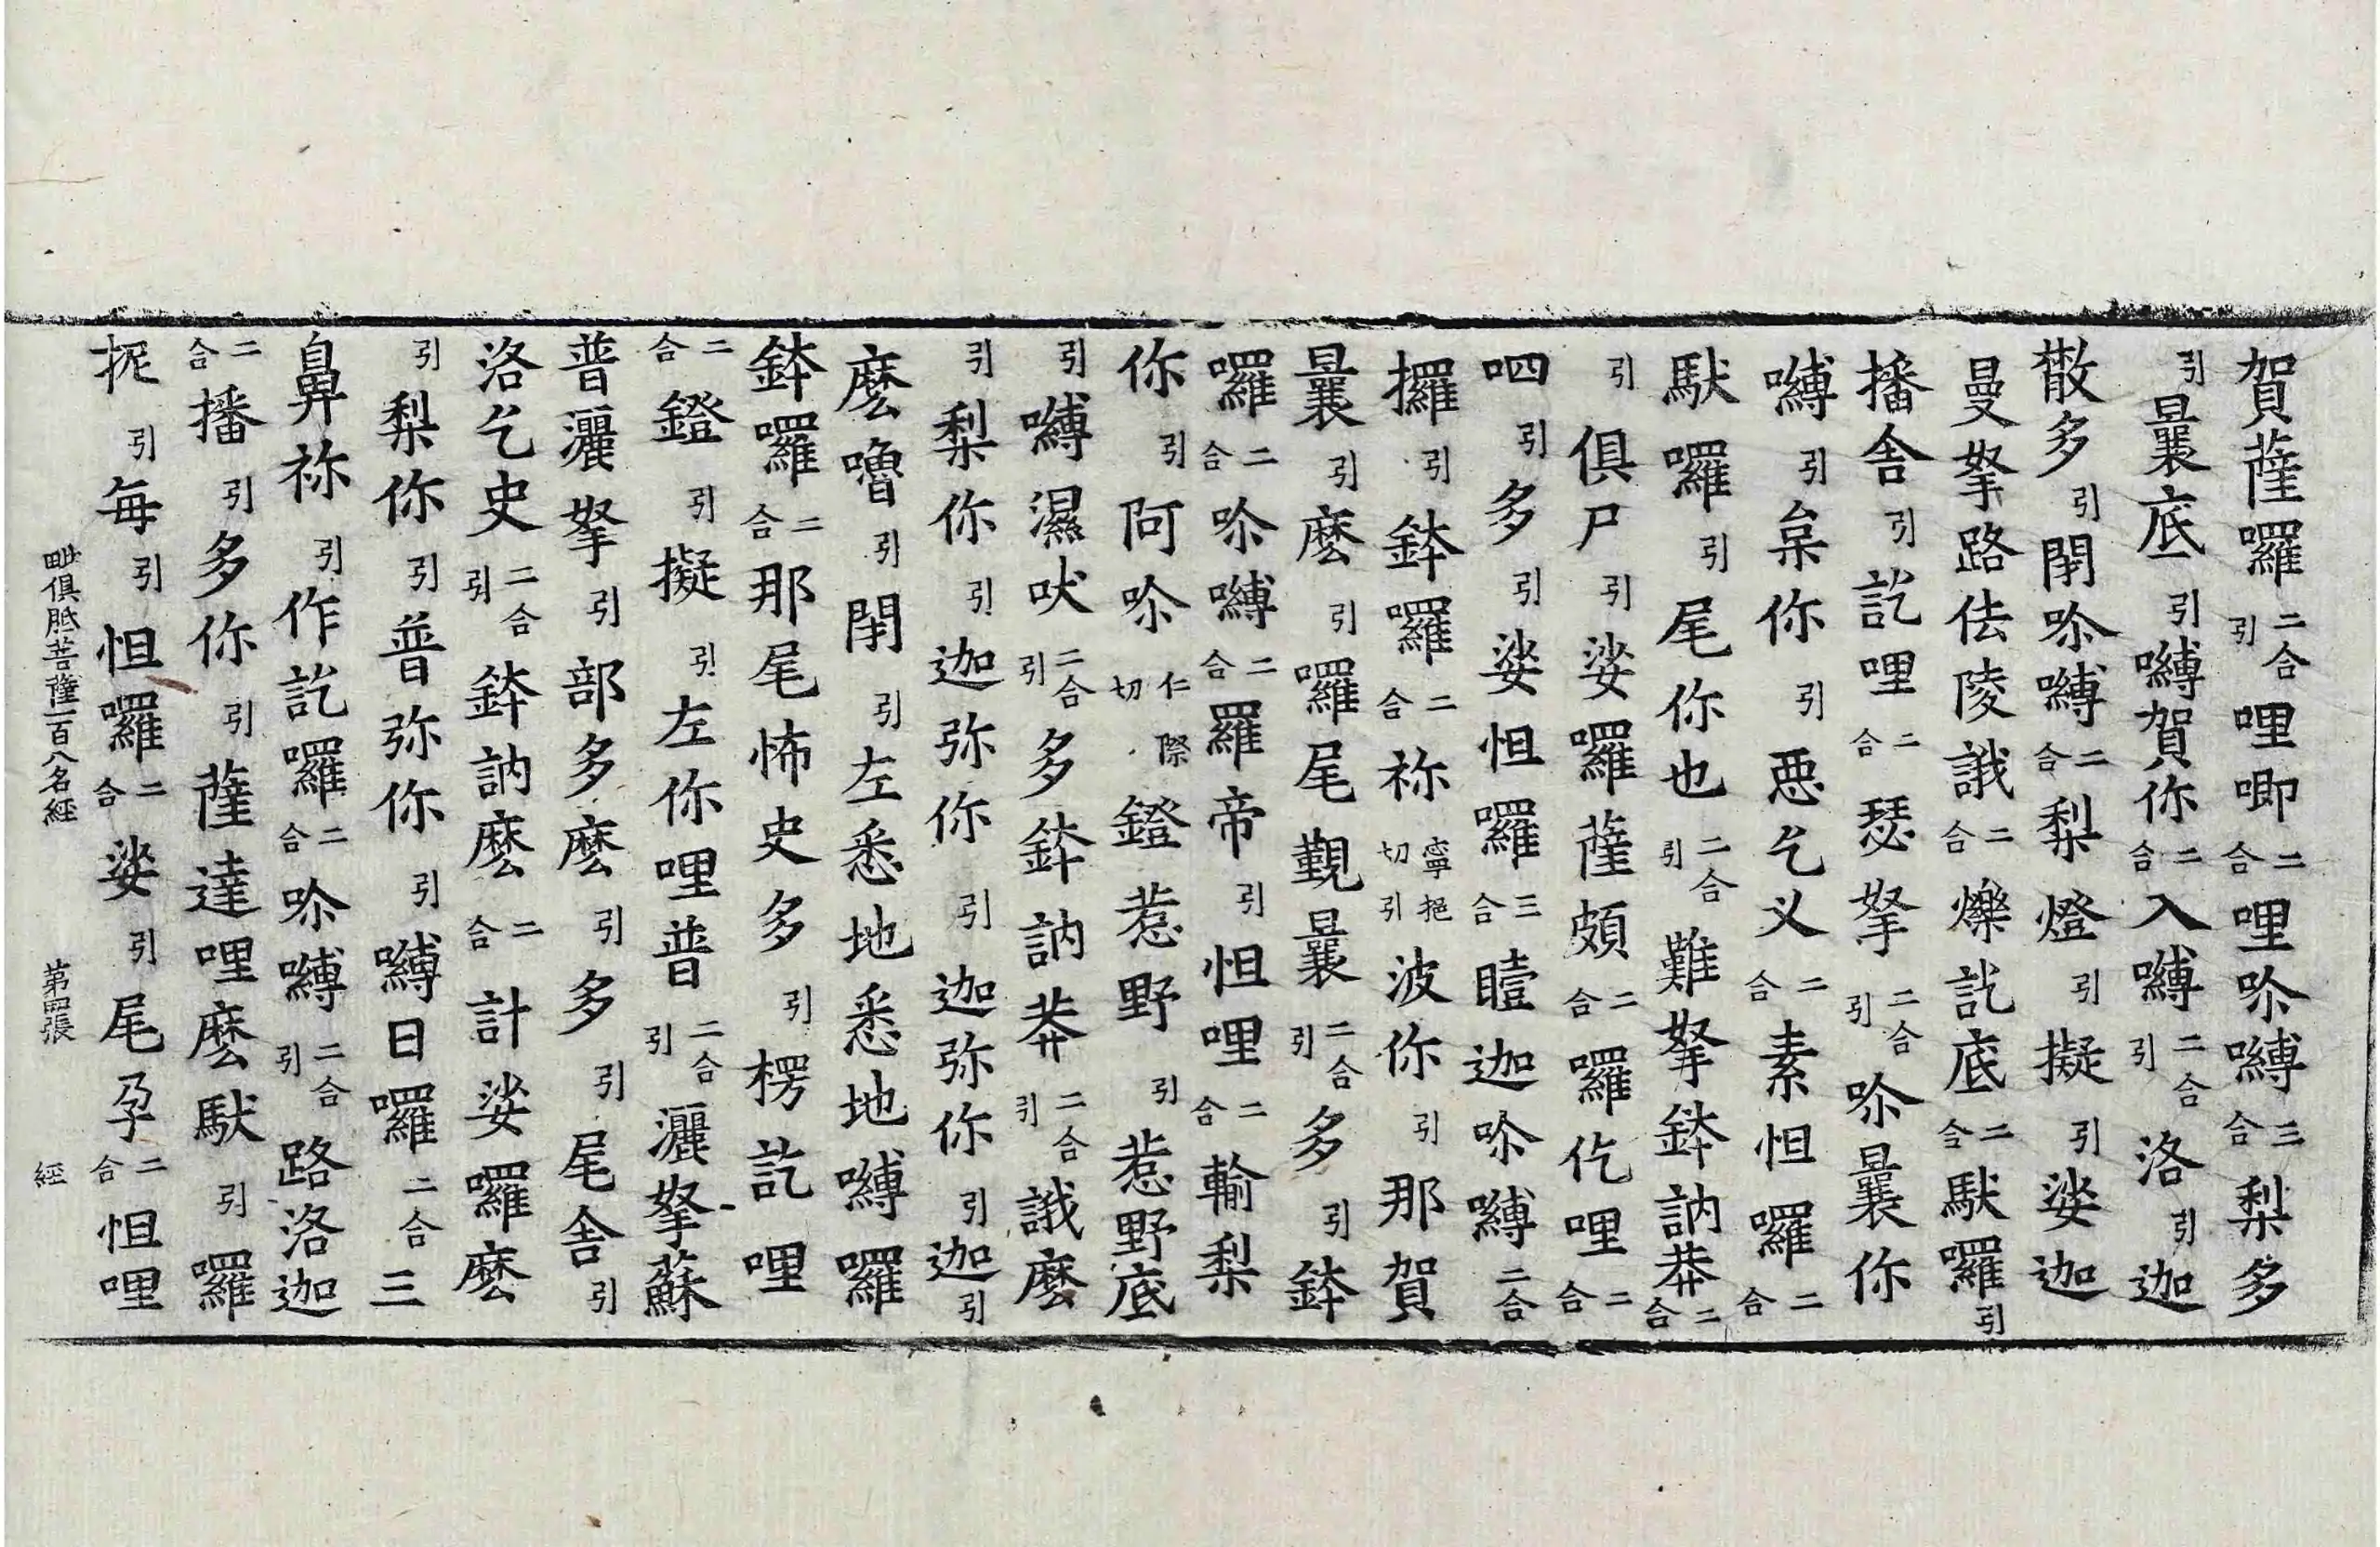 賀薩囉二合引哩唧二合哩吤嚩三合梨多
引曩底引嚩賀你二合入嚩二合引洛引迦
散多引閉吤嚩二合梨燈引擬引娑迦
曼拏路佉陵誐二合爍訖底二合馱囉引
播舍引訖哩二合瑟拏二合引吤曩你
嚩引枲你引惡乞义二合素怛囉二合
馱囉引尾你也二合引難拏鉢訥莽二合
引俱尸引娑囉薩頗二合囉仡哩二合
呬引多引娑怛囉三合瞳迦吤嚩二合
攞引鉢囉二合祢寧挹切引波你引那賀
曩引麽引囉尾覲曩二合引多引鉢
囉二合吤嚩二合羅帝引怛哩二合輸梨
你引阿吤仁際切鐙惹野引惹野底
引嚩濕吠二合引多鉢訥莽二合引誐麽
引梨你引迦弥你引迦弥你引迦引
麽嚕引閉引左悉地悉地嚩囉
鉢囉二合那尾怖史多引楞訖哩
二合鐙引擬引左你哩普二合引灑拏蘇
普灑拏引部多麽引多引尾舍引
洛乞史二合引鉢訥麽二合計娑囉麽
引梨你引普弥你引嚩日囉二合三
鼻祢引作訖囉二合吤嚩二合引路洛迦
二合播引多你引薩達哩麽馱引囉
抳引每引怛囉二合娑引尾孕二合怛哩
毗俱胝菩薩一百八名經 第四張 經